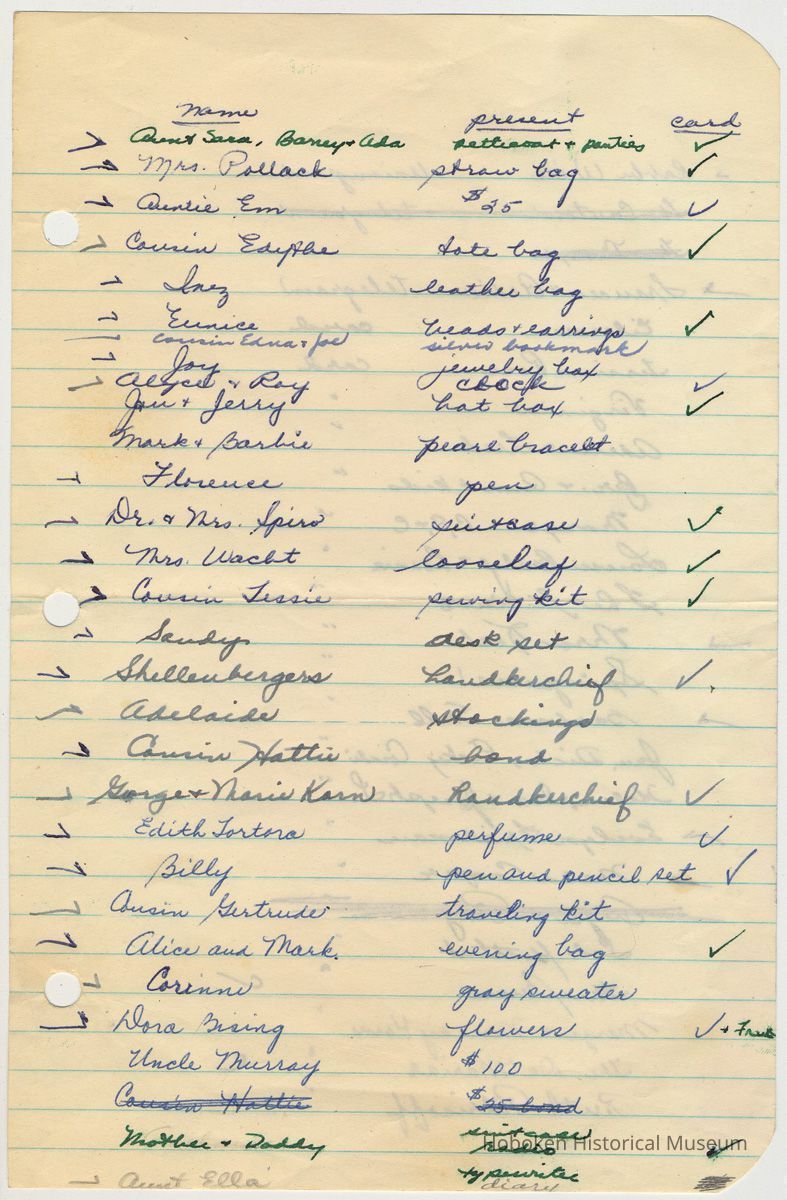 name present card
Aunt Sara, Barney + Ada petticoat + panties ✓
Mrs. Pollack straw bag ✓
Auntie Em $25 ✓
Cousin Edythe tote bag ✓
Inez leather bag
Eunice beads + earrings ✓
Cousin Edna + Joe silver bookmark
Joy jewelry box
Alyce + Roy clock ✓
Jan + Jerry hat box ✓
Mark + Barbie pearl bracelet
Florence pen
Dr. & Mrs. Spiro suitcase ✓
Mrs. Wacht looseleaf ✓
Cousin Tessie sewing kit ✓
Sandy desk set
Shellenbergers handkerchief ✓
Adelaide stockings
Cousin Hattie bond
George + Marie Korn Handkerchief ✓
Edith Tortora perfume ✓
Billy pen and pencil set ✓
Cousin Gertrude traveling kit
Alice and Mark. evening bag ✓
Corinne gray sweater
Dora Bising flowers ✓ +
Uncle Murray $100
Cousin Hattie $25 bond
Mother + Daddy suitcase
radio ✓
typewriter
Aunt Ella diary
Hoboken Historical Museum